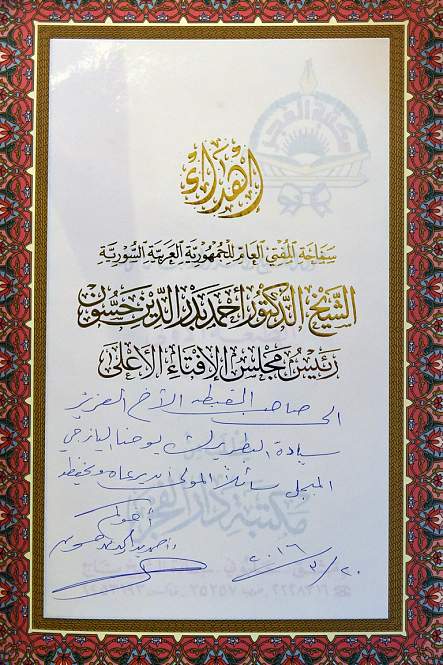 إهداء
سماحة المفتي العام للجمهورية العربية السورية
الشيخ الدكتور أحمد بدر الدين حسون
رئيس مجلس الإفتاء الأعلى
الى صاحب الغبطة الأخ العزيز
سيادة البطريرك يوحنا اليازجي
المبجل سائلاً المولى أن يرعاه ويحفظه
أخوكم
د. أحمد بدر الدين حسون
٢٠١٦/٣/٢٠
مكتبة دار الفجر